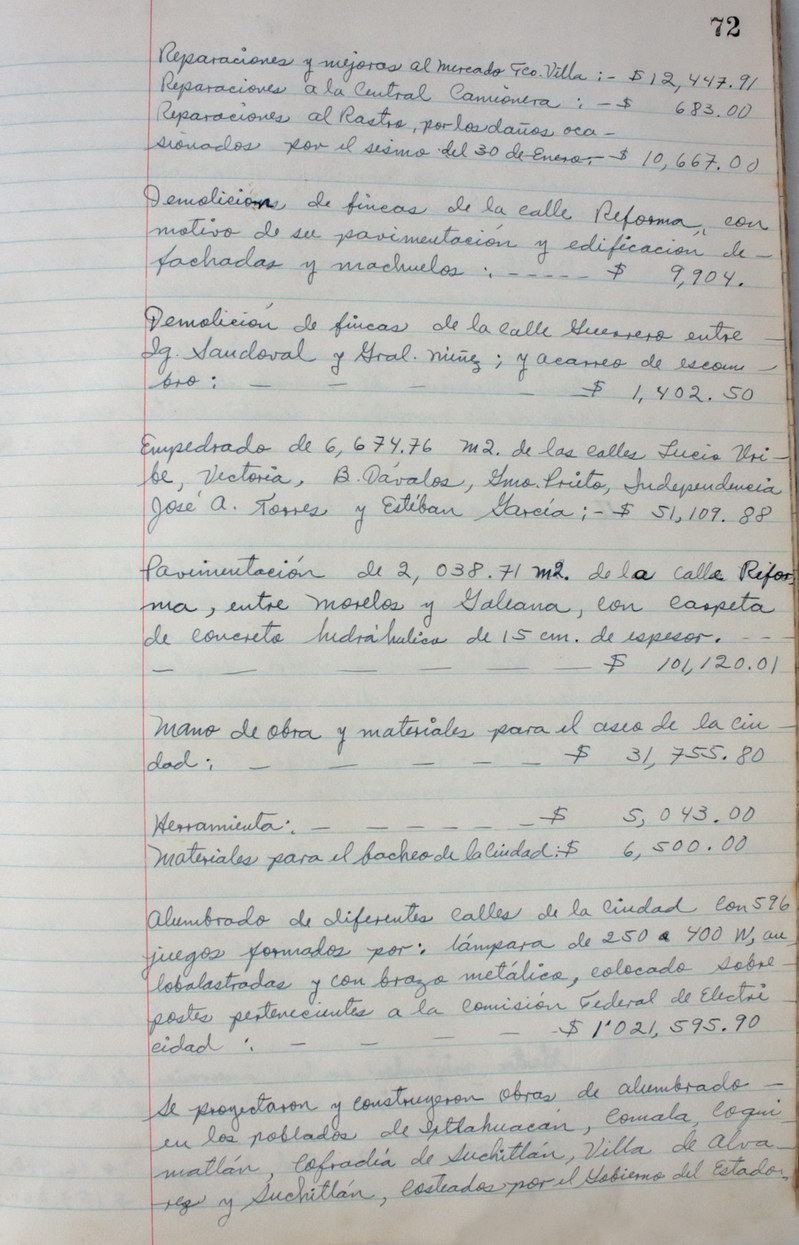 72
Reparaciones y mejoras al Mercado Fco. Villa :- $12,447.91
Reparaciones a la Central Camionera : - $ 683.00
Reparaciones al Rastro, por los daños oca -
sionados por el sismo del 30 de Enero:- $ 10,667.00
Demolición de fincas de la calle Reforma, con
motivo de su pavimentación y edificación de -
fachadas y machuelos : - - - - - $ 9,904.
Demolición de fincas de la calle Guerrero entre -
Ig. Sandoval y Gral. Núñez ; y acarreo de escom -
bro : - - - - - $ 1,402.50
Empedrado de 6,674.76 m2. de las calles Lucio Uri -
be, Victoria, B. Dávalos, Gmo. Prieto, Independencia
José A. Torres y Estéban García ; - $ 51,109.88
Pavimentación de 2,038.71 m2. de la calle Refor-
ma, entre Morelos y Galeana, con carpeta
de concreto hidráhulico de 15 cm. de espesor. - - -
- - - - - - $ 101,120.01
Mano de obra y materiales para el aseo de la ciu -
dad : - - - - - $ 31,755.80
Herramienta : - - - - - - $ 5,043.00
Materiales para el bacheo de la Ciudad : $ 6,500.00
Alumbrado de diferentes calles de la Ciudad con 596
juegos formados por : lámpara de 250 a 400 W, au
tobalastradas y con brazo metálico, colocado sobre -
postes pertenecientes a la Comisión Federal de Electri
cidad : - - - - - $ 1'021,595.90
Se proyectaron y construyeron obras de alumbrado -
en los poblados de Ixtlahuacán, Comala, Coqui
matlán, Cofradía de Suchitlán, Villa de Alva -
rez y Suchitlán, costeados por el Gobierno del Estado.